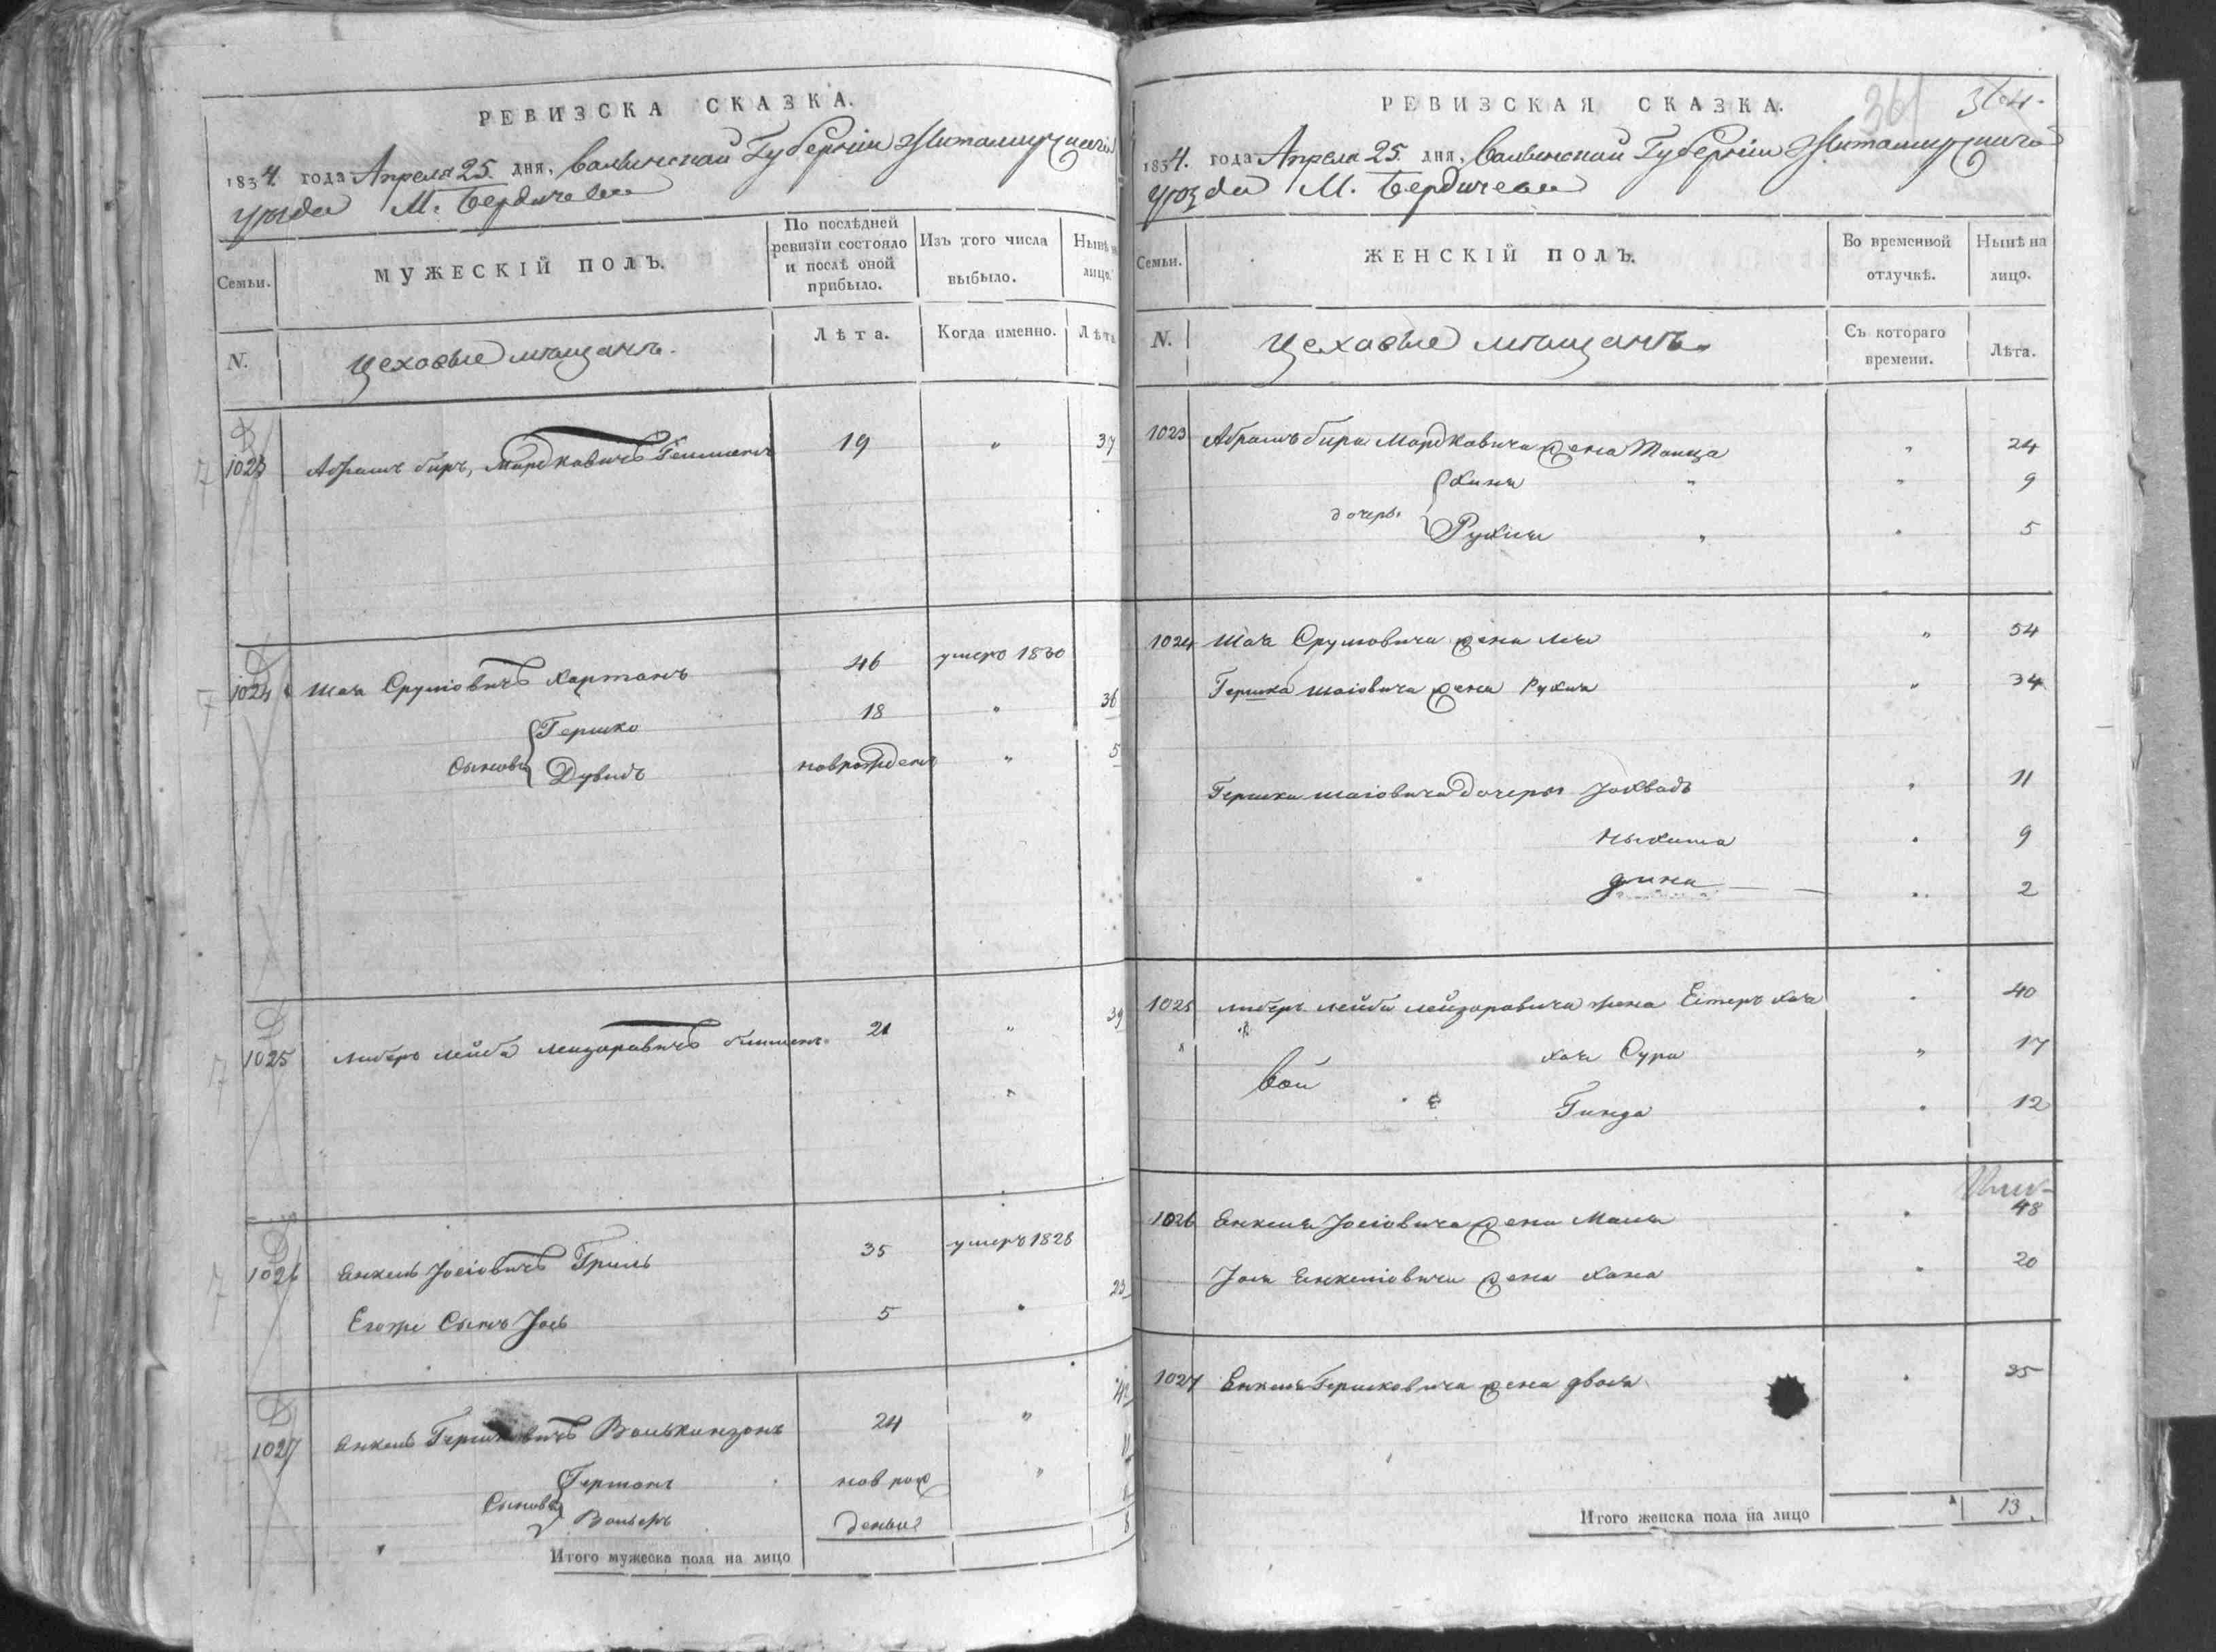 РЕВИЗСКА СКАЗКА.
1834. года Апреля 25. дня, Волынской Губернии Житомирского
уезда М. Бердичева
Семьи.
МУЖЕСКІЙ ПОЛЪ.
По послѣдней
ревизіи состояло
и послѣ оной
прибыло.
Изъ того числа
выбыло.
Нынѣ на
лицо.
N.
Цеховые мещане.
Лѣта.
Когда именно.
Лѣта
1023 Абрамъ Беръ, Мордковичъ 19 " 37
1024 Шая Сруліовичъ 46 умеръ 1830
Гершко 18 " 36
Сыновья Дувидъ новорожден " 5
1025 Либеръ Лейба Лейзоровичъ 21 " 39
1026 Янкель Іосіовичъ Гриль 35 умеръ 1828
Егоже Сынъ Іось 5 23
1027 Янкель Гершковичъ Волькинзонъ 24 " 42
Германъ нов рож " 11
Сыновья
деныи
8
Итого мужеска пола на лицо
РЕВИЗСКАЯ СКАЗКА.
361
1834. года Апреля 25. дня, Волынской Губернии Житомирского
уезда М. Бердичева
Семьи.
ЖЕНСКІЙ ПОЛЪ.
Во временной
отлучкѣ.
Нынѣ на
лицо.
N.
Цеховые мещане
Съ котораго
времени.
Лѣта.
1023 Абрамъ Бера Мордковича жена 24
Хина " " 9
дочеры
Рухля 5
1024 Шая Сруліовича жена Лея " 54
Гершка Шаіовича жена Рухля " 34
Гершка Шаіовича дочеры Іохвадъ 11
Ныхама 9
дина 2
1025 Либеръ Лейба Лейзоровича жена Естеръ Хая 40
Хая Сура " 17
Гинда 12
1026 Янкеля Іосіовича жена Маля 48
Іося Янкеліовича жена Хана 20
1027 Янкеля Гершковича жена двося 35
Итого женска пола на лицо 13